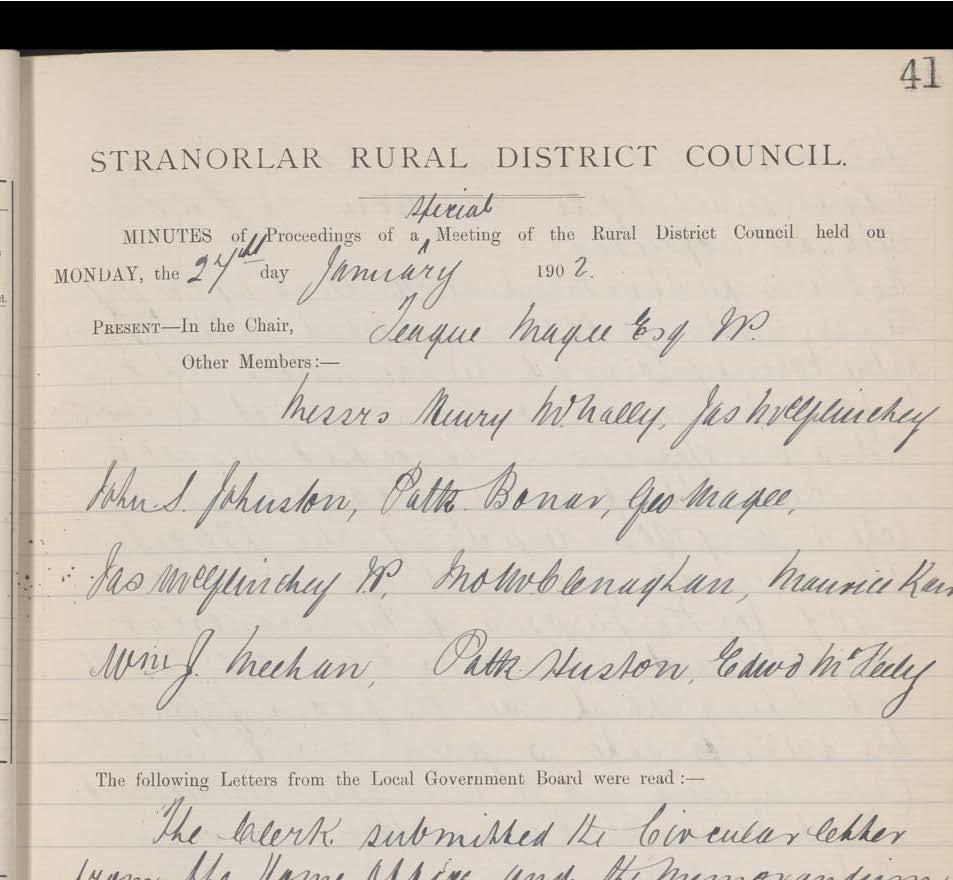 41
STRANORLAR RURAL DISTRICT COUNCIL.
special
MINUTES of Proceedings of a ^ Meeting of the Rural District Council held on
MONDAY, the 27th day January 1902.
PRESENT—In the Chair, Teague Magee Esq JP.
Other Members:—
Messrs Henry McNally, Jas McGlinchey
John S. Johnston, Patk. Bonar, Geo Magee,
Jas McGlinchey JP, Jno McClenaghan, Maurice
Wm J. Meehan, Patk Huston, Edwd McFeely
The following Letters from the Local Government Board were read:—
The Clerk submitted the Circular letter
from the Home Office and the Memorandum